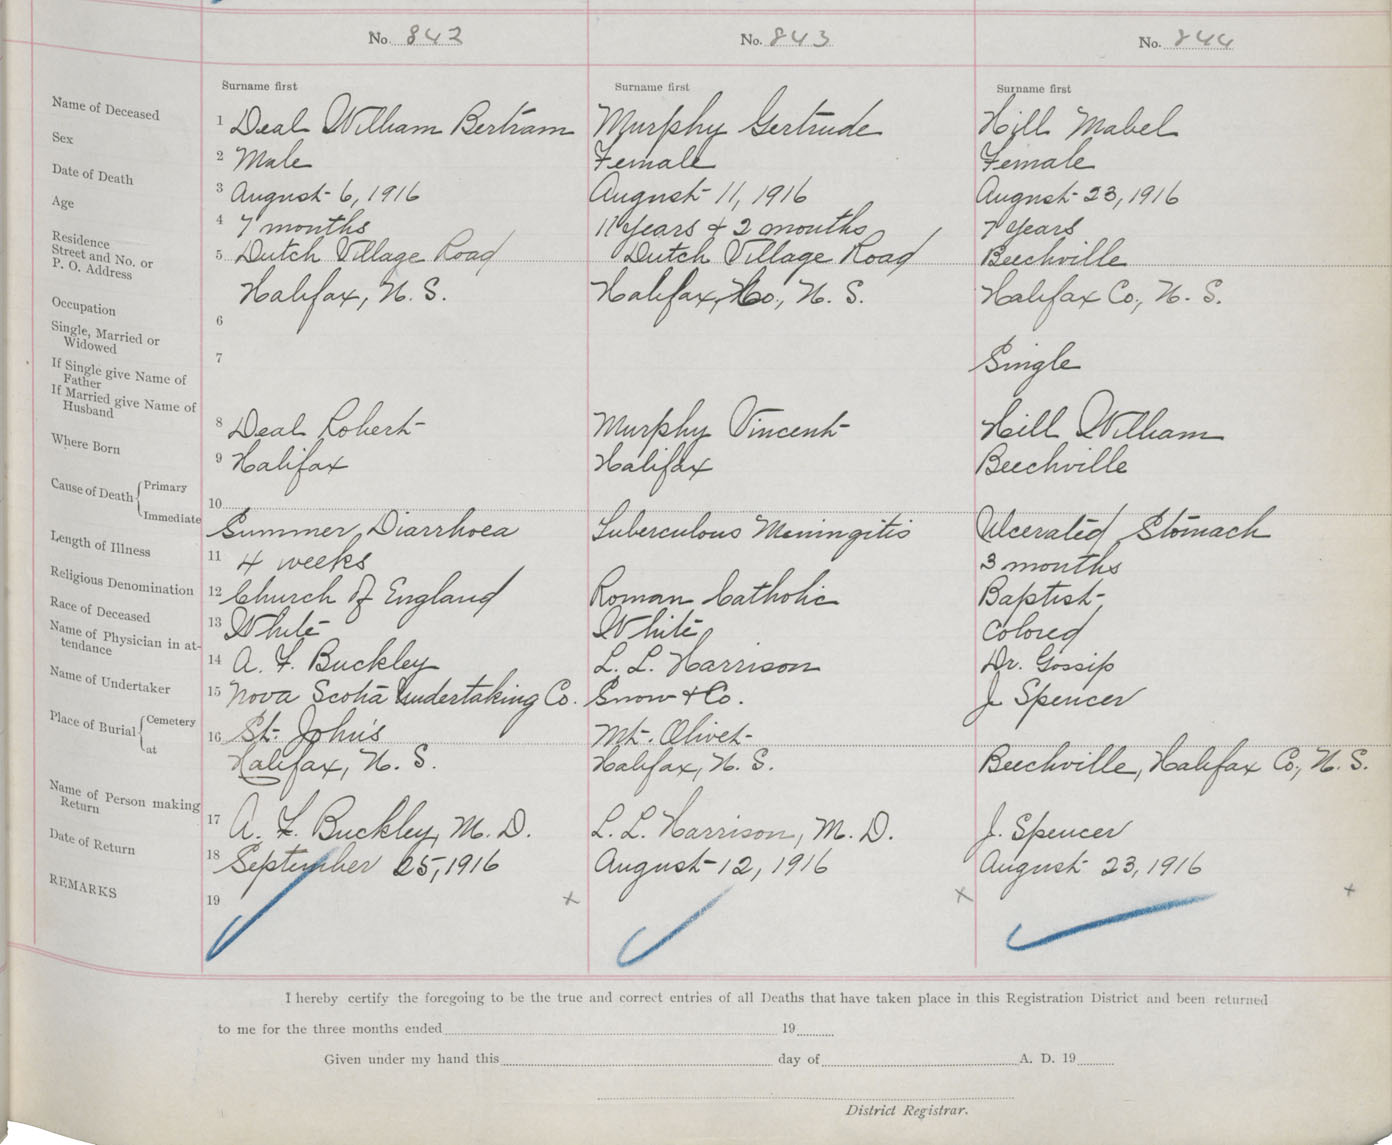 No. 842 No. 843 No. 844
Surname first Surname first Surname first
Name of Deceased 1 Deal William Bertram Murphy Gertrude Hill Mabel
Sex 2 Male Female Female
Date of Death 3 August 6, 1916 August 11, 1916 August 23, 1916
Age 4 7 months 11 years & 2 months 7 years
Residence
Street and No. or 5 Dutch Village Road Dutch Village Road Beechville
P. O. Address Halifax, N. S. Halifax, Co., N. S. Halifax Co., N. S.
Occupation 6
Single, Married or
Widowed 7 Single
If Single give Name of
Father
If Married give Name of
Husband 8 Deal Robert Murphy Vincent Hill William
Where Born 9 Halifax Halifax Beechville
Cause of Death Primary 10
Immediate Summer Diarrhoea Tuberculous Meningitis Ulcerated Stomach
Length of Illness 11 4 weeks 3 months
Religious Denomination 12 Church of England Roman Catholic Baptist
Race of Deceased 13 White White Colored
Name of Physician in at-
tendance 14 A. F. Buckley L. L. Harrison Dr. Gossip
Name of Undertaker 15 Nova Scotia Undertaking Co. Snow & Co. J Spencer
Place of Burial Cemetery 16 St. John's Mt. Olivet
at Halifax, N. S. Halifax, N. S. Beechville, Halifax Co., N. S.
Name of Person making
Return 17 A. F. Buckley, M. D. L. L. Harrison, M. D. J. Spencer
Date of Return 18 September 25, 1916 August 12, 1916 August 23, 1916
REMARKS 19 x x x
I hereby certify the foregoing to be the true and correct entries of all Deaths that have taken place in this Registration District and been returned
to me for the three months ended 19
Given under my hand this day of A. D. 19
District Registrar.